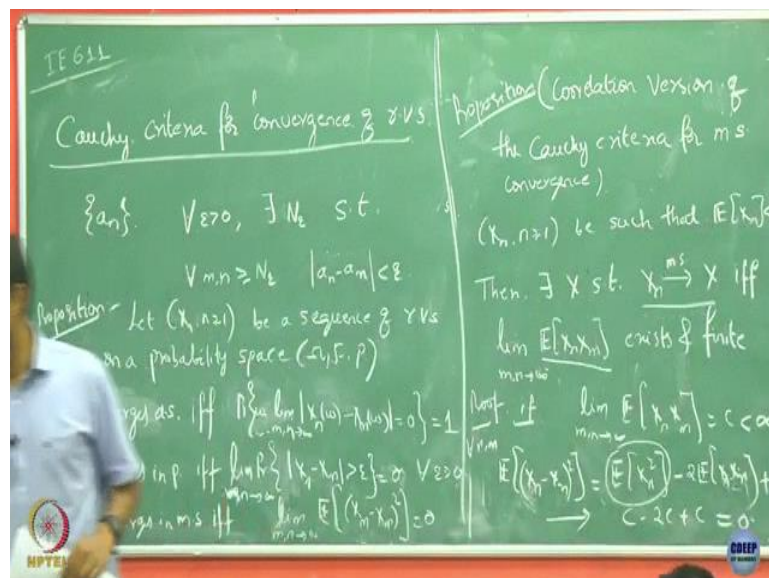 IE611
Cauchy criteria for convergence of r.v.s.
{a_n}. ∀ε>0, ∃ N_ε s.t.
∀ m,n ≥ N_ε |a_n-a_m|<ε
Proposition- Let (X_n, n≥1) be a sequence of r.v.s
on a probability space (Ω, F, P)
erges a.s. iff P{ω: lim_{m,n→∞} |X_n(ω)-X_m(ω)|=0}=1
s in p. iff lim_{m,n→∞} Pr{|X_n-X_m|>ε}=0 ∀ε>0
erges in m.s iff lim_{m,n→∞} E[(X_m-X_n)²]=0
Proposition (Correlation Version of
the Cauchy criteria for m.s.
convergence)
(X_n, n≥1) be such that E[X_n]<
Then ∃ X s.t. X_n →^{ms} X iff
lim_{m,n→∞} E[X_nX_m] exists & finite
Proof: if lim_{m,n→∞} E[X_n X_m] = C<∞
∀n,m
E[(X_n-X_m)²] = E[X_n²] - 2E[X_nX_m] +
→ C-2C+C = 0.
NPTEL
CDEEP